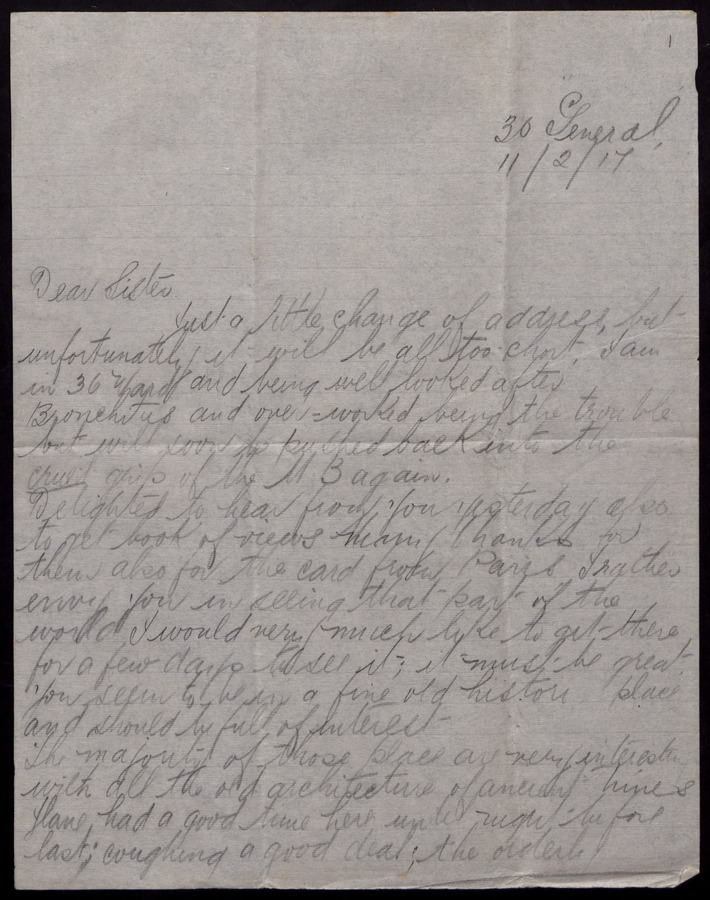 1
30 General,
11/2/17
Dear Sister
Just a little change of address, but
unfortunately it will be all too short. I am
in 36 Ward and being well looked after
Bronchitus and over-worked being the trouble
but will soon be pushed back into the
cruel grip of the M B again.
Delighted to hear from you yesterday also
to get book of views many thanks for
them also for the card from Paris I rather
envy you in seeing that part of the
world I would very much like to get there
for a few days to see it; it must be great
You seem to be in a fine old histori place
and should be full of interest
The majority of those place are very interesting
with all the old architecture of ancient times
Have had a good time here until night before
last; coughing a good deal; the orderly